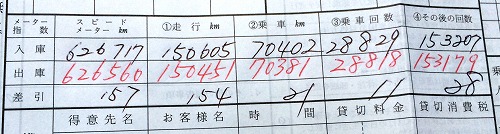 メーター指数 スピードメーター km ①走行 km ②乗車 km ③乗車回数 ④その後の回数
入庫 626717 150605 70402 28829 153207
出庫 626560 150451 70381 28818 153179
差引 157 154 21 11 28
得意先名 お客様名 時間 貸切料金 貸切消費税